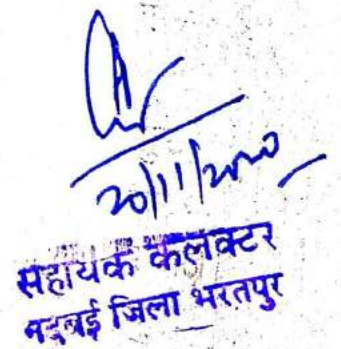 20/11/2020
सहायक कलक्टर
नदबई जिला भरतपुर